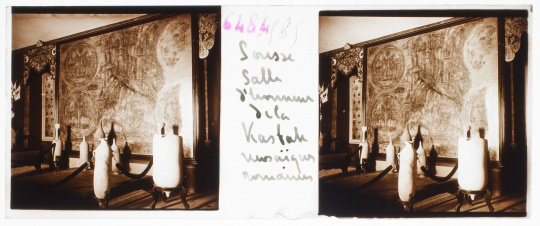 6484
Sousse
Salle
d'honneur
de la
Kasbah
mosaiques
romaines